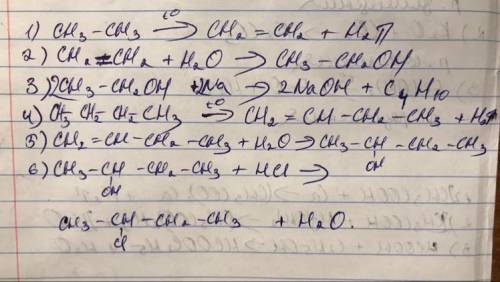 1) CH₃-CH₃ →t⁰ CH₂=CH₂ + H₂↑
2) CH₂=CH₂ + H₂O → CH₃-CH₂OH
3) 2CH₃-CH₂OH + 2Na → 2NaOH + C₄H₁₀
4) CH₃ CH₂ CH₂ CH₃ →t⁰ CH₂=CH-CH₂-CH₃ + H₂↑
5) CH₂=CH-CH₂-CH₃ + H₂O → CH₃-CH-CH₂-CH₃
OH
6) CH₃-CH-CH₂-CH₃ + HCl →
OH
CH₃-CH-CH₂-CH₃ + H₂O.
Cl